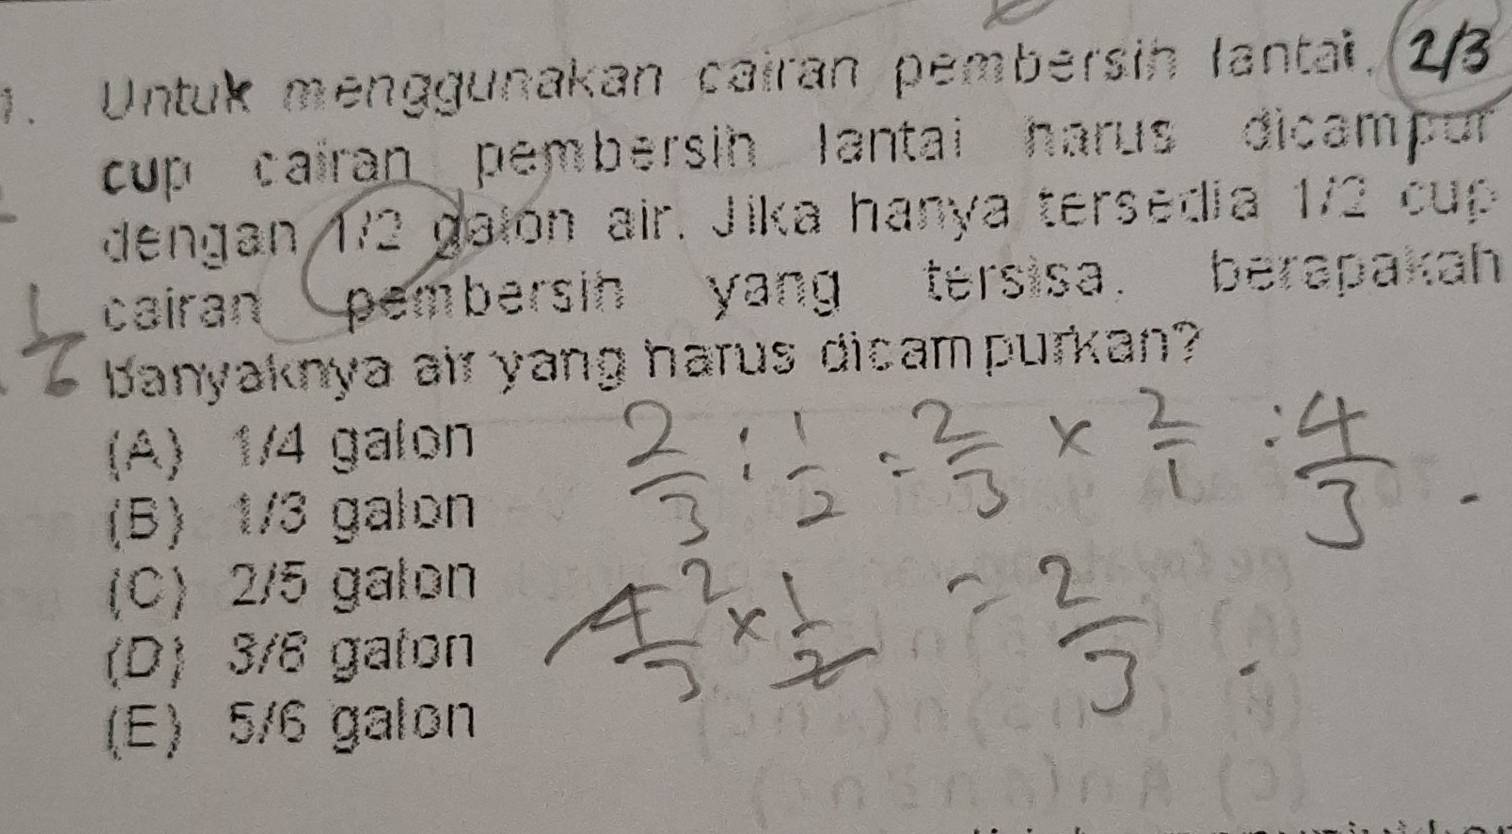 1. Untuk menggunakan cairan pembersih lantai, 2/3
cup cairan pembersih lantai harus dicampur
dengan 1/2 galon air. Jika hanya tersedia 1/2 cup
cairan pembersih yang tersisa, berapakah
banyaknya air yang harus dicampurkan?
1/6
(A) 1/4 galon
(B) 1/3 galon
(C) 2/5 galon
(D) 3/8 galon
(E) 5/6 galon
2/3 : 1/2 = 2/3 × 2/1 : 4/3 .
4/3 2 × 1/2 = 2/3 .